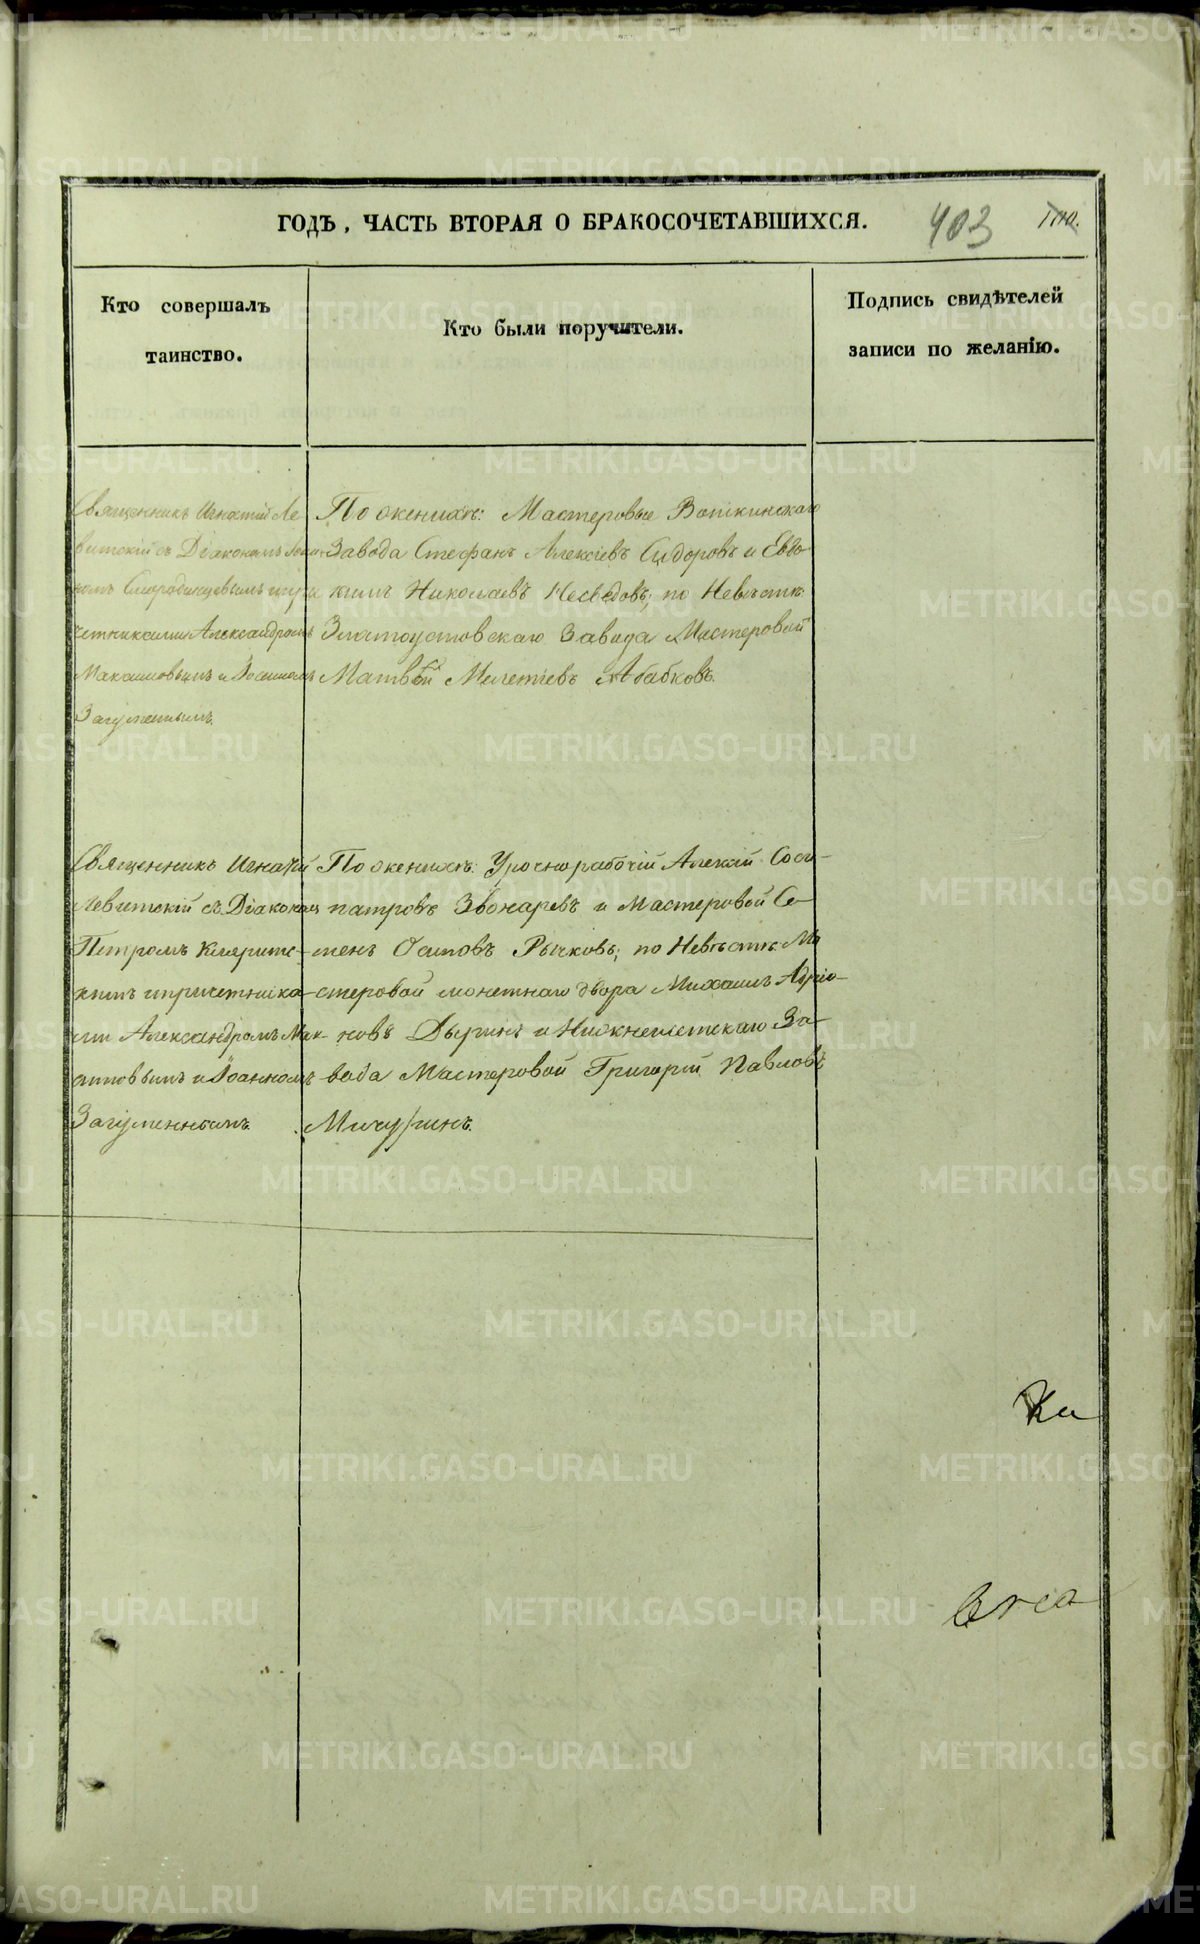 ГОДЪ, ЧАСТЬ ВТОРАЯ О БРАКОСОЧЕТАВШИХСЯ.
403
Кто совершалъ
таинство.
Кто были поручители.
Подпись свидѣтелей
записи по желанію.
Священникъ Игнатій Ле
витскій съ Діакономъ
Смородинцевымъ и при
четниками Александромъ
Макаимовымъ и Іоанномъ
Загуменнымъ.
По женихѣ: Мастеровые Воткинскаго
Завода Стефанъ Алексіевъ Сидоровъ и Евѳи
кимъ Николаевъ Несведовъ; по Невѣстѣ:
Златоустовскаго Завода Мастеровой
Матвѣй Мелетіевъ Абабковъ.
Священникъ Игнатій
Левитскій съ Діакономъ
Петромъ
кимъ и причетника-
ми Александромъ Мак-
имовымъ и Іоанномъ
Загуменнымъ.
По женихѣ: Урочнорабочій Алексій Соси-
патровъ Звонаревъ и Мастеровой Се-
менъ Осиповъ Рычковъ; по Невѣстѣ: Ма
стеровой монетнаго двора Михаилъ Адріа-
новъ Дыринъ и Нижнеисетскаго За-
вода Мастеровой Григорій Павловъ
Мичуринъ.
METRIKI.GASO-URAL.RU